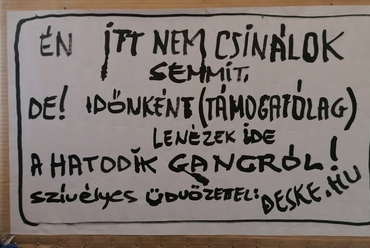 ÉN ITT NEM CSINÁLOK
SEMMIT,
DE! IDŐNKÉNT (TÁMOGATÓLAG)
LENÉZEK IDE
A HATODIK GANGRÓL!
SZÍVÉLYES ÜDVÖZETTEL: DESKE.HU